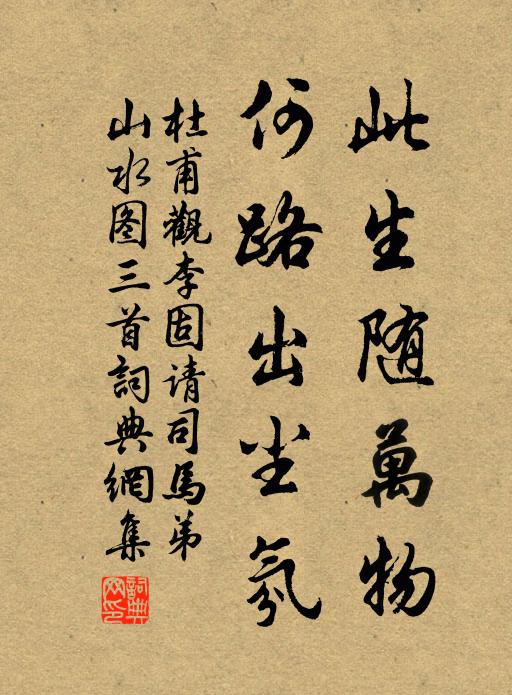 此生随萬物
何路出尘氛
杜甫觀李固请司馬弟
山水图三首詞典網集
詞典网印